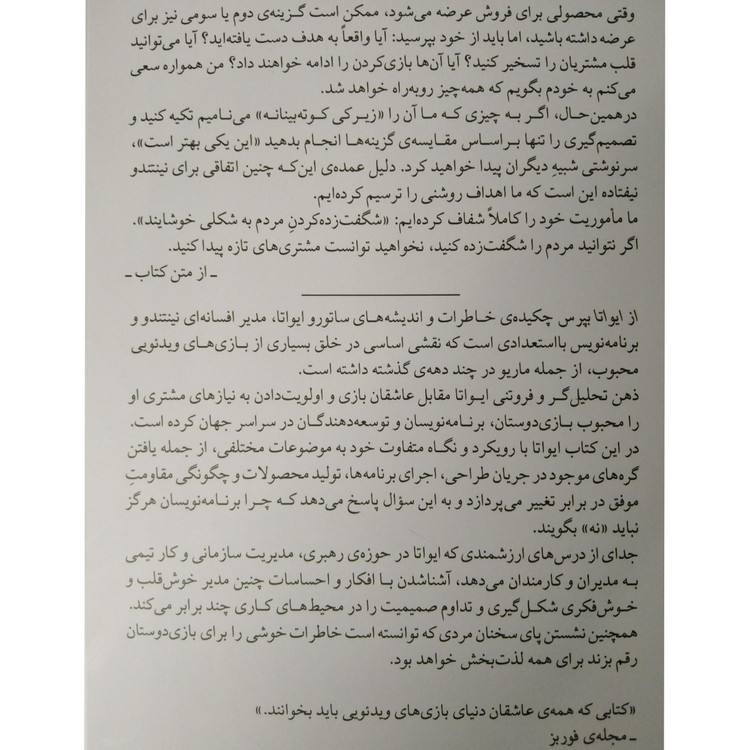 وقتی محصولی برای فروش عرضه می‌شود، ممکن است گزینه‌ی دوم یا سومی نیز برای
عرضه داشته باشید، اما باید از خود بپرسید: آیا واقعاً به هدف دست یافته‌اید؟ آیا می‌توانید
قلب مشتریان را تسخیر کنید؟ آیا آن‌ها بازی‌کردن را ادامه خواهند داد؟ من همواره سعی
می‌کنم به خودم بگویم که همه‌چیز روبه‌راه خواهد شد.
درهمین‌حال، اگر به چیزی که ما آن را «زیرکی کوته‌بینانه» می‌نامیم تکیه کنید و
تصمیم‌گیری را تنها براساس مقایسه‌ی گزینه‌ها انجام بدهید «این یکی بهتر است»،
سرنوشتی شبیهِ دیگران پیدا خواهید کرد. دلیل عمده‌ی این‌که چنین اتفاقی برای نینتندو
نیفتاده این است که ما اهداف روشنی را ترسیم کرده‌ایم.
ما مأموریت خود را کاملاً شفاف کرده‌ایم: «شگفت‌زده‌کردنِ مردم به شکلی خوشایند».
اگر نتوانید مردم را شگفت‌زده کنید، نخواهید توانست مشتری‌های تازه پیدا کنید.
ـ از متن کتاب ـ
از ایواتا بپرس چکیده‌ی خاطرات و اندیشه‌های ساتورو ایواتا، مدیر افسانه‌ای نینتندو و
برنامه‌نویس بااستعدادی است که نقشی اساسی در خلق بسیاری از بازی‌های ویدئویی
محبوب، از جمله ماریو در چند دهه‌ی گذشته داشته است.
ذهن تحلیل‌گر و فروتنی ایواتا مقابل عاشقان بازی و اولویت‌دادن به نیازهای مشتری او
را محبوب بازی‌دوستان، برنامه‌نویسان و توسعه‌دهندگان در سراسر جهان کرده است.
در این کتاب ایواتا با رویکرد و نگاه متفاوت خود به موضوعات مختلفی، از جمله یافتن
گره‌های موجود در جریان طراحی، اجرای برنامه‌ها، تولید محصولات و چگونگی مقاومتِ
موفق در برابر تغییر می‌پردازد و به این سؤال پاسخ می‌دهد که چرا برنامه‌نویسان هرگز
نباید «نه» بگویند.
جدای از درس‌های ارزشمندی که ایواتا در حوزه‌ی رهبری، مدیریت سازمانی و کار تیمی
به مدیران و کارمندان می‌دهد، آشناشدن با افکار و احساسات چنین مدیر خوش‌قلب و
خوش‌فکری شکل‌گیری و تداوم صمیمیت را در محیط‌های کاری چند برابر می‌کند.
همچنین نشستن پای سخنان مردی که توانسته است خاطرات خوشی را برای بازی‌دوستان
رقم بزند برای همه لذت‌بخش خواهد بود.
«کتابی که همه‌ی عاشقان دنیای بازی‌های ویدئویی باید بخوانند.»
ـ مجله‌ی فوربز